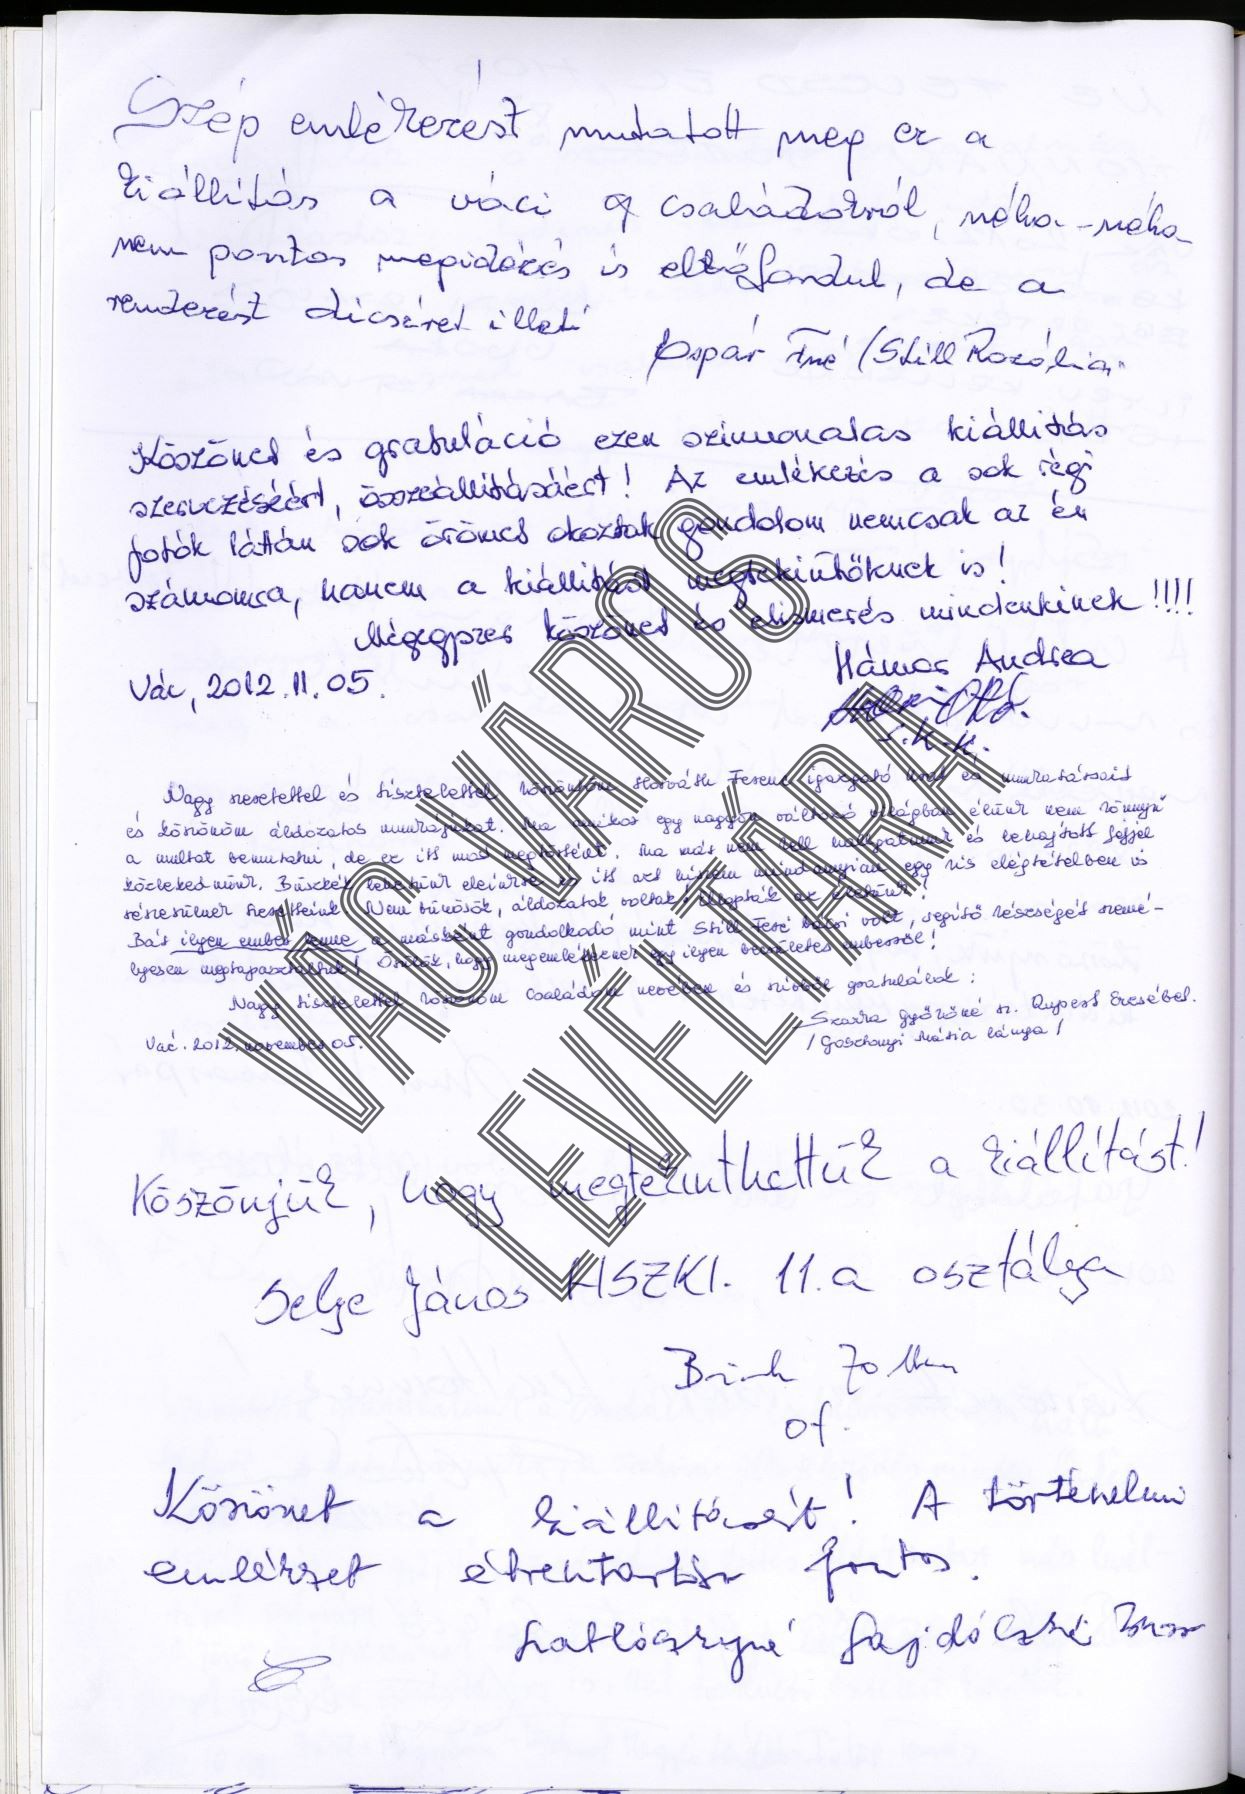 Szép emlékezést mutatott meg ez a
kiállítás a váci családokról, néha-néha
nem pontos megidézés is előfordul, de a
rendezést dicséret illeti
Gáspár Fné (Still Rozália
Köszönet és gratuláció ezen szinvonalas kiállitás
szervezéséért, összeállitásáért! Az emlékezés a sok régi
fotók láttán sok örömet okoztak gondolom nemcsak az én
számomra, hanem a kiállitást megtekintőknek is!
Mégegyszer köszönet és elismerés mindenkinek!!!!
Vác, 2012.11.05.
Hámos Andrea
S.K.K.
Nagy szeretettel és tisztelettel köszöntöm Horváth Ferenc igazgató Urat és munkatársait
és köszönöm áldozatos munkájukat. Ma amikor egy nagyon változó világban élünk nem könnyü
a multat bemutatni, de ez itt most megtörtént. Ma már nem kell hallgatnunk és lehajtott fejjel
közlekednünk. Büszkék lehetünk eleinkre és itt azt hiszem mindannyian egy kis elégtételben is
részesülnek szeretteink. Nem bünösök, áldozatok voltak! Ellopták az életünk!
Bár ilyen ember lenne a másként gondolkodó mint Still Feri bácsi volt, segitő készségét szemé-
lyesen megtapasztaltuk! Örülök, hogy megemlékeznek egy ilyen becsületes emberről!
Nagy tisztelettel köszönöm Családom nevében és szivből gratulálok:
Vác. 2012. november 05.
Szarka Györöné sz. Rupert Erzsébet.
/ Goschonyi Mária lánya /
Köszönjük, hogy megtekinthettük a kiállítást!
Selye János HSZKI. 11.a osztálya
Zoltán
of.
Köszönet a kiállításért! A történelmi
emlékezet ébrentartása fontos.
Gajdócziné
VÁC VÁROS
LEVÉLTÁRA